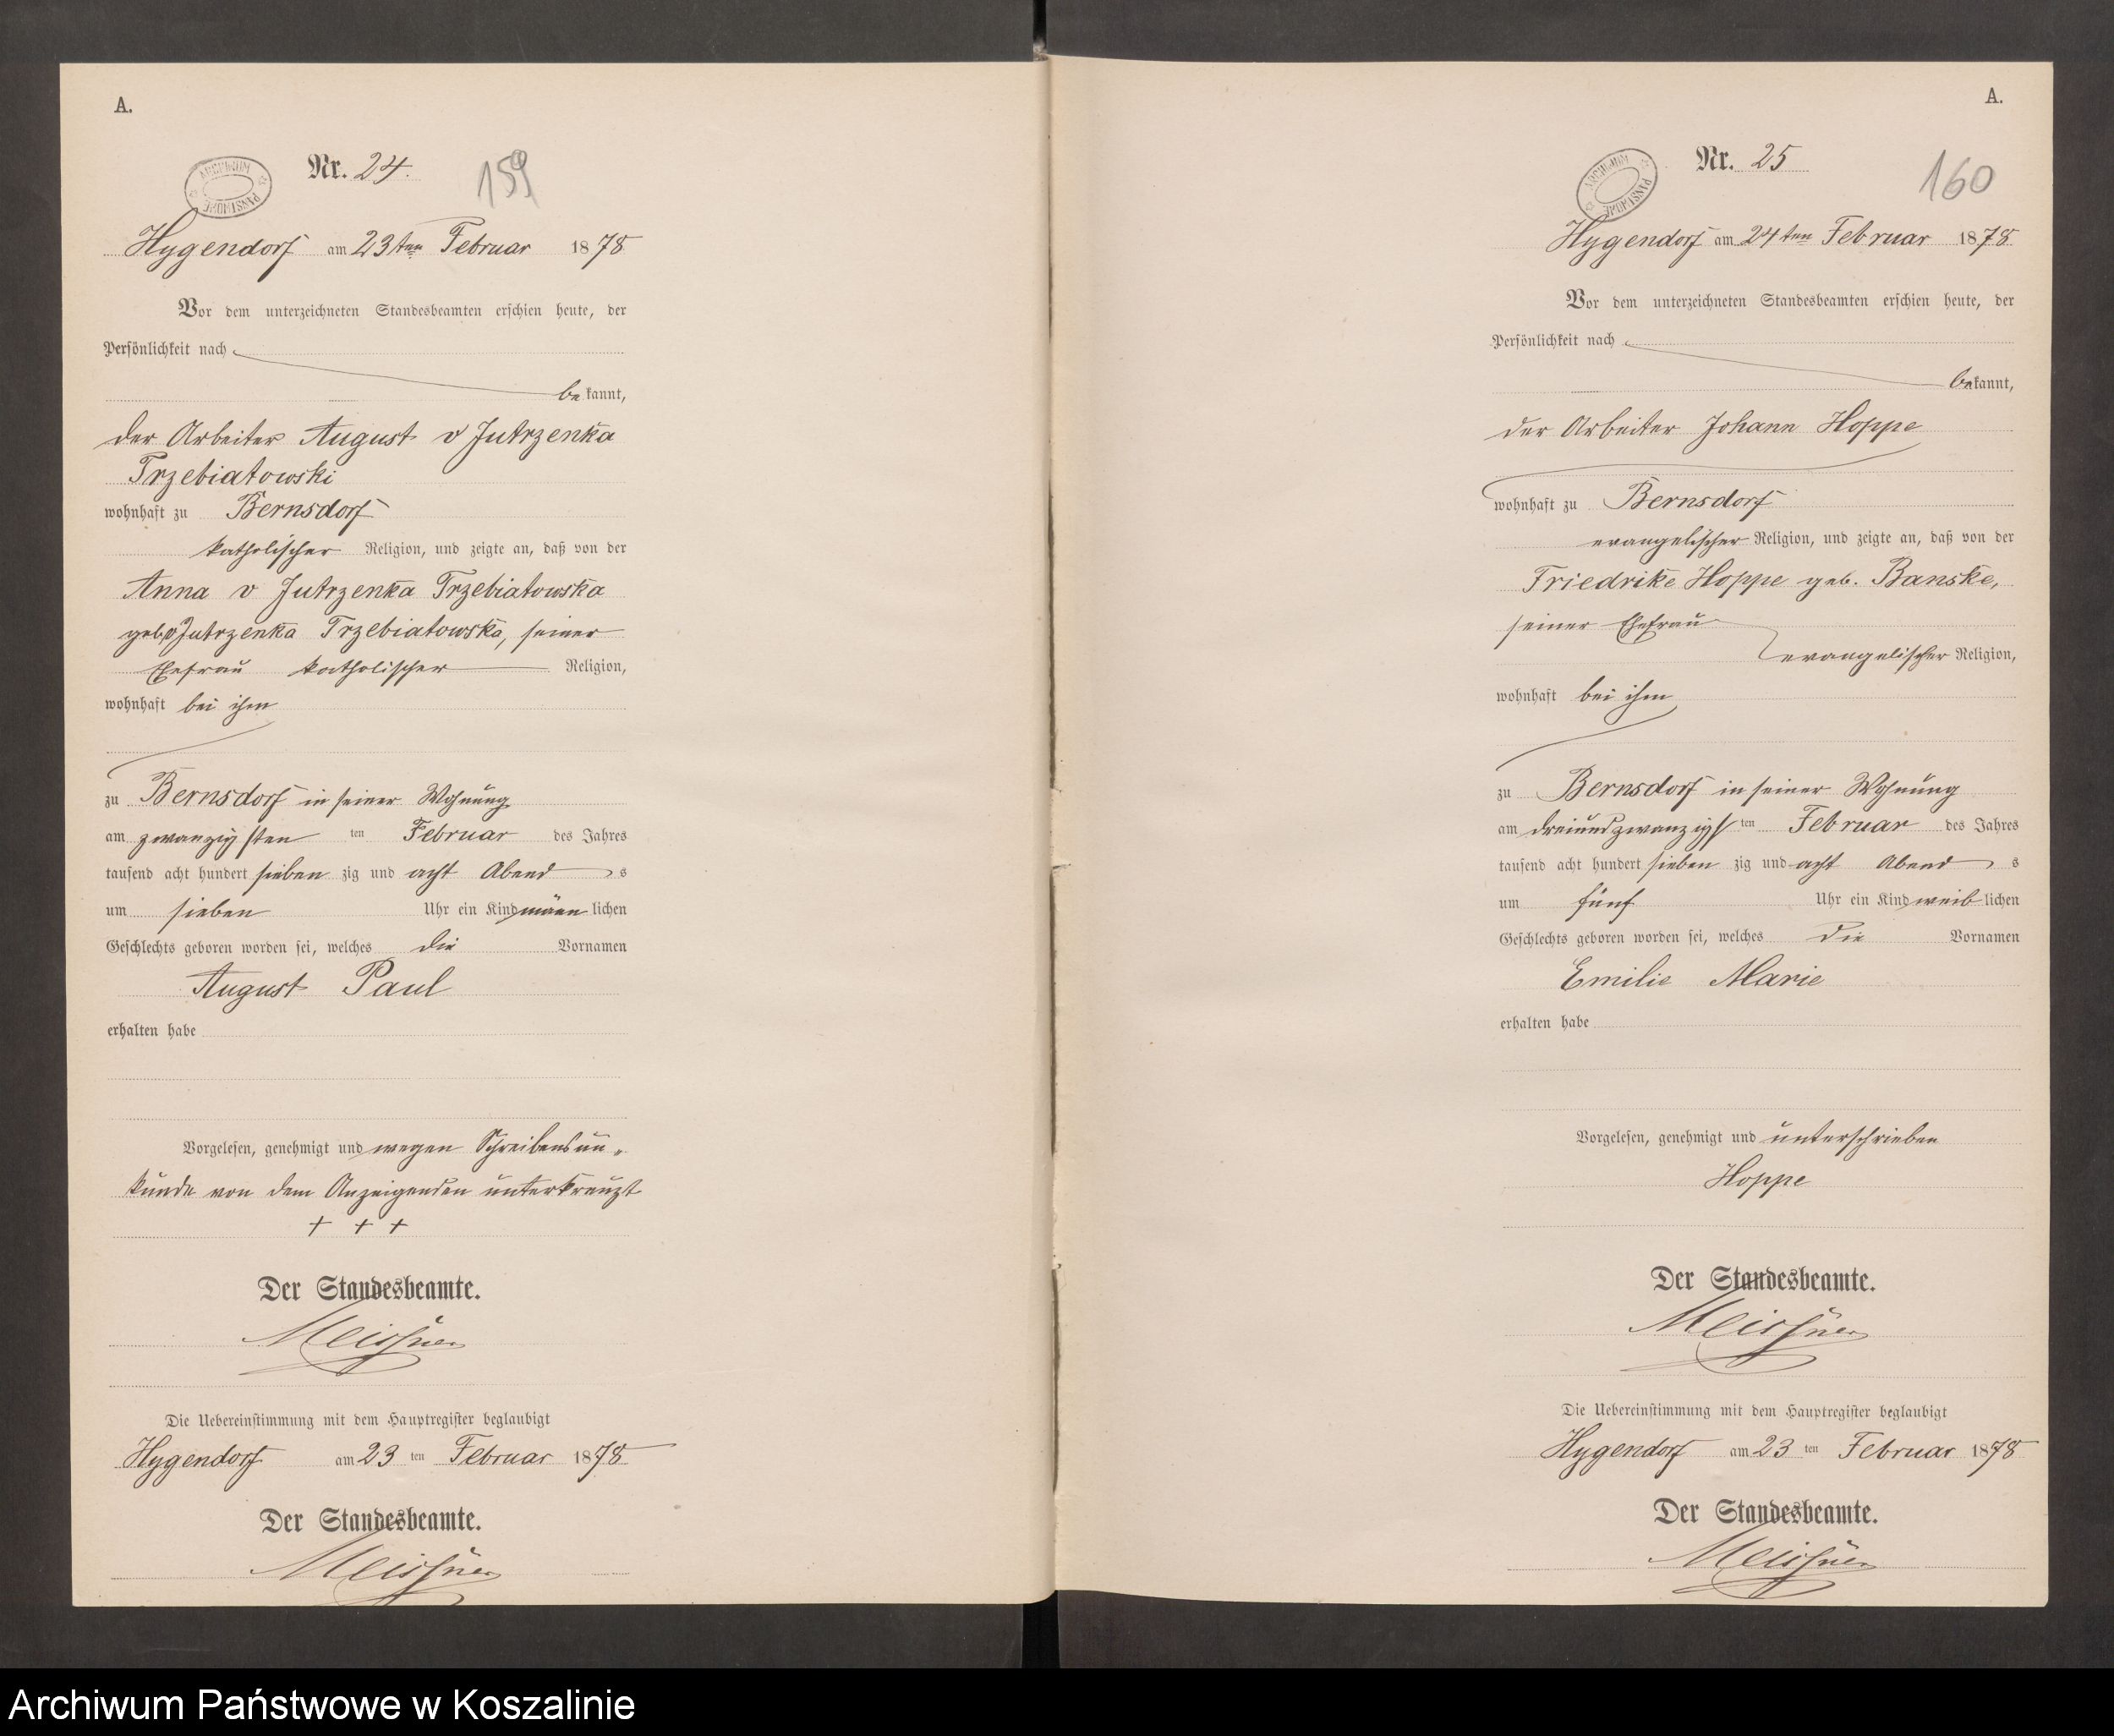 A.
ARCHIWUM PAŃSTWOWE
Nr. 24.
159
Hygendorf am 23ten Februar 1878
Vor dem unterzeichneten Standesbeamten erschien heute, der
Persönlichkeit nach
bekannt,
der Arbeiter August v Jutrzenka
Trzebiatowski
wohnhaft zu Bernsdorf
katholischer Religion, und zeigte an, daß von der
Anna v Jutrzenka Trzebiatowska
geb v Jutrzenka Trzebiatowska, seiner
Ehefrau katholischer Religion,
wohnhaft bei ihm
zu Bernsdorf in seiner Wohnung
am zwanzigsten ten Februar des Jahres
tausend acht hundert sieben zig und acht Abend s
um sieben Uhr ein Kind männlichen
Geschlechts geboren worden sei, welches die Vornamen
August Paul
erhalten habe
Vorgelesen, genehmigt und wegen Schreibensun-
kunde von dem Anzeigenden unterkreuzt
+ + +
Der Standesbeamte.
Meissner
Die Uebereinstimmung mit dem Hauptregister beglaubigt
Hygendorf am 23 ten Februar 1878
Der Standesbeamte.
Meissner
A.
ARCHIWUM PAŃSTWOWE
Nr. 25
160
Hygendorf am 24ten Februar 1878
Vor dem unterzeichneten Standesbeamten erschien heute, der
Persönlichkeit nach
bekannt,
der Arbeiter Johann Hoppe
wohnhaft zu Bernsdorf
evangelischer Religion, und zeigte an, daß von der
Friedrike Hoppe geb. Banske,
seiner Ehefrau
evangelischer Religion,
wohnhaft bei ihm
zu Bernsdorf in seiner Wohnung
am dreiundzwanzigs ten Februar des Jahres
tausend acht hundert sieben zig und acht Abend s
um fünf Uhr ein Kind weiblichen
Geschlechts geboren worden sei, welches die Vornamen
Emilie Marie
erhalten habe
Vorgelesen, genehmigt und unterschrieben
Hoppe
Der Standesbeamte.
Meissner
Die Uebereinstimmung mit dem Hauptregister beglaubigt
Hygendorf am 23 ten Februar 1878
Der Standesbeamte.
Meissner
Archiwum Państwowe w Koszalinie